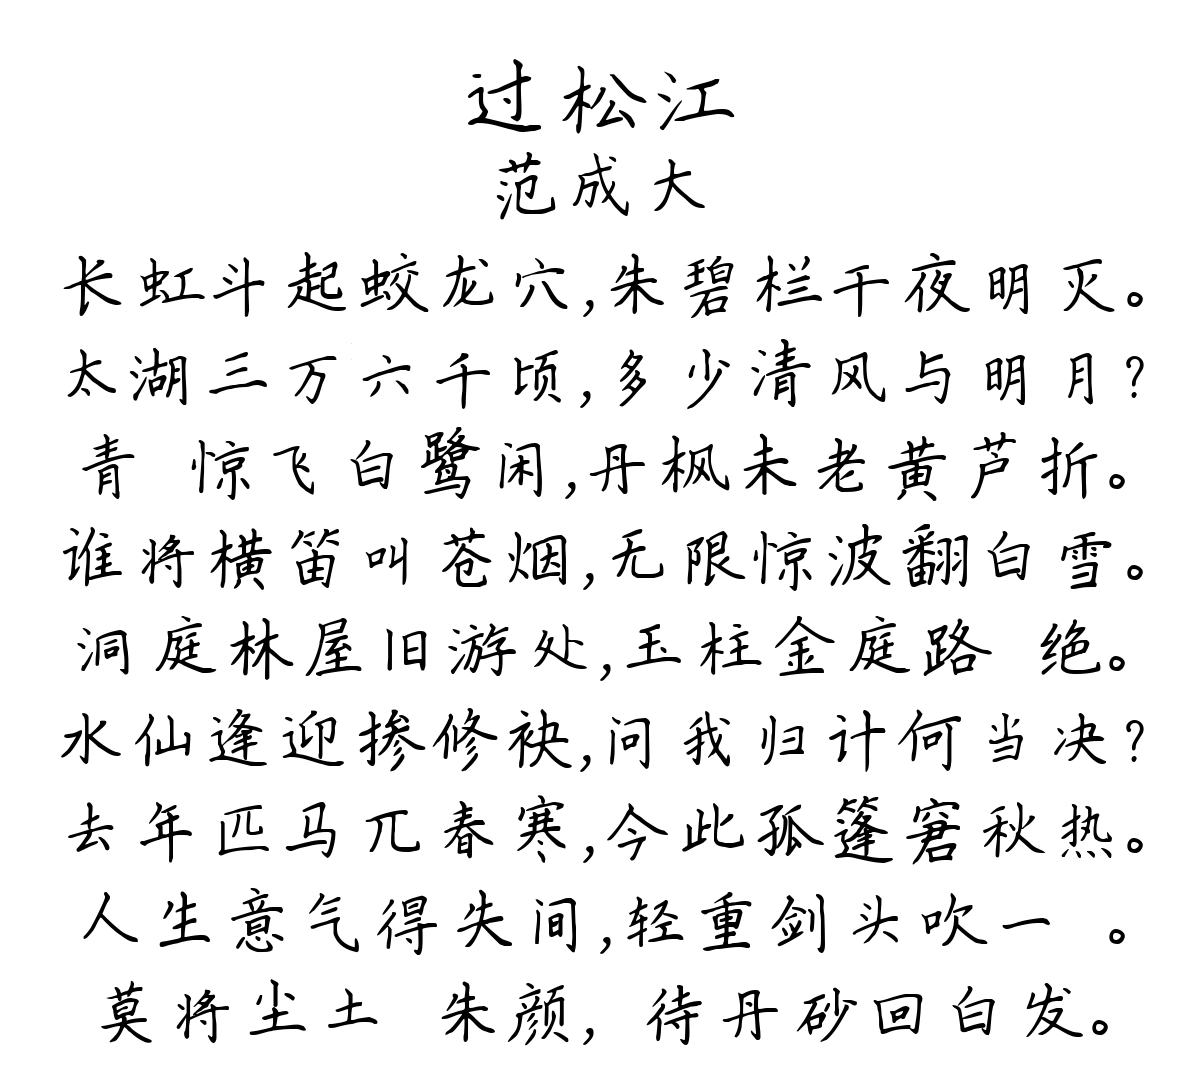 过松江
范成大
长虹斗起蛟龙穴,朱碧栏干夜明灭。
太湖三万六千顷,多少清风与明月?
青 惊飞白鹭闲,丹枫未老黄芦折。
谁将横笛叫苍烟,无限惊波翻白雪。
洞庭林屋旧游处,玉柱金庭路 绝。
水仙逢迎掺修袂,问我归计何当决?
去年匹马兀春寒,今此孤篷窘秋热。
人生意气得失间,轻重剑头吹一 。
莫将尘土 朱颜, 待丹砂回白发。